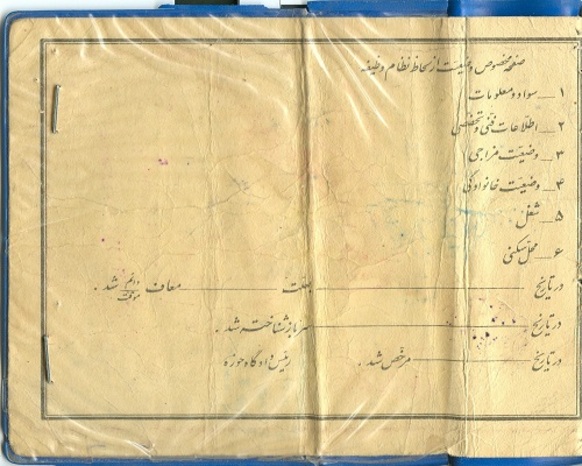 صفحه مخصوص وضعیت از لحاظ نظام وظیفه
۱ـ سواد و معلومات
۲ـ اطلاعات فنی و تخصصی
۳ـ وضعیت مزاجی
۴ـ وضعیت خانوادگی
۵ـ شغل
۶ـ محل سکنی
در تاریخ ــــ بعلت ــــ معاف دائم موقت شد .
در تاریخ ــــ سرباز شناخته شد .
در تاریخ ــــ مرخص شد . رئیس دادگاه حوزه